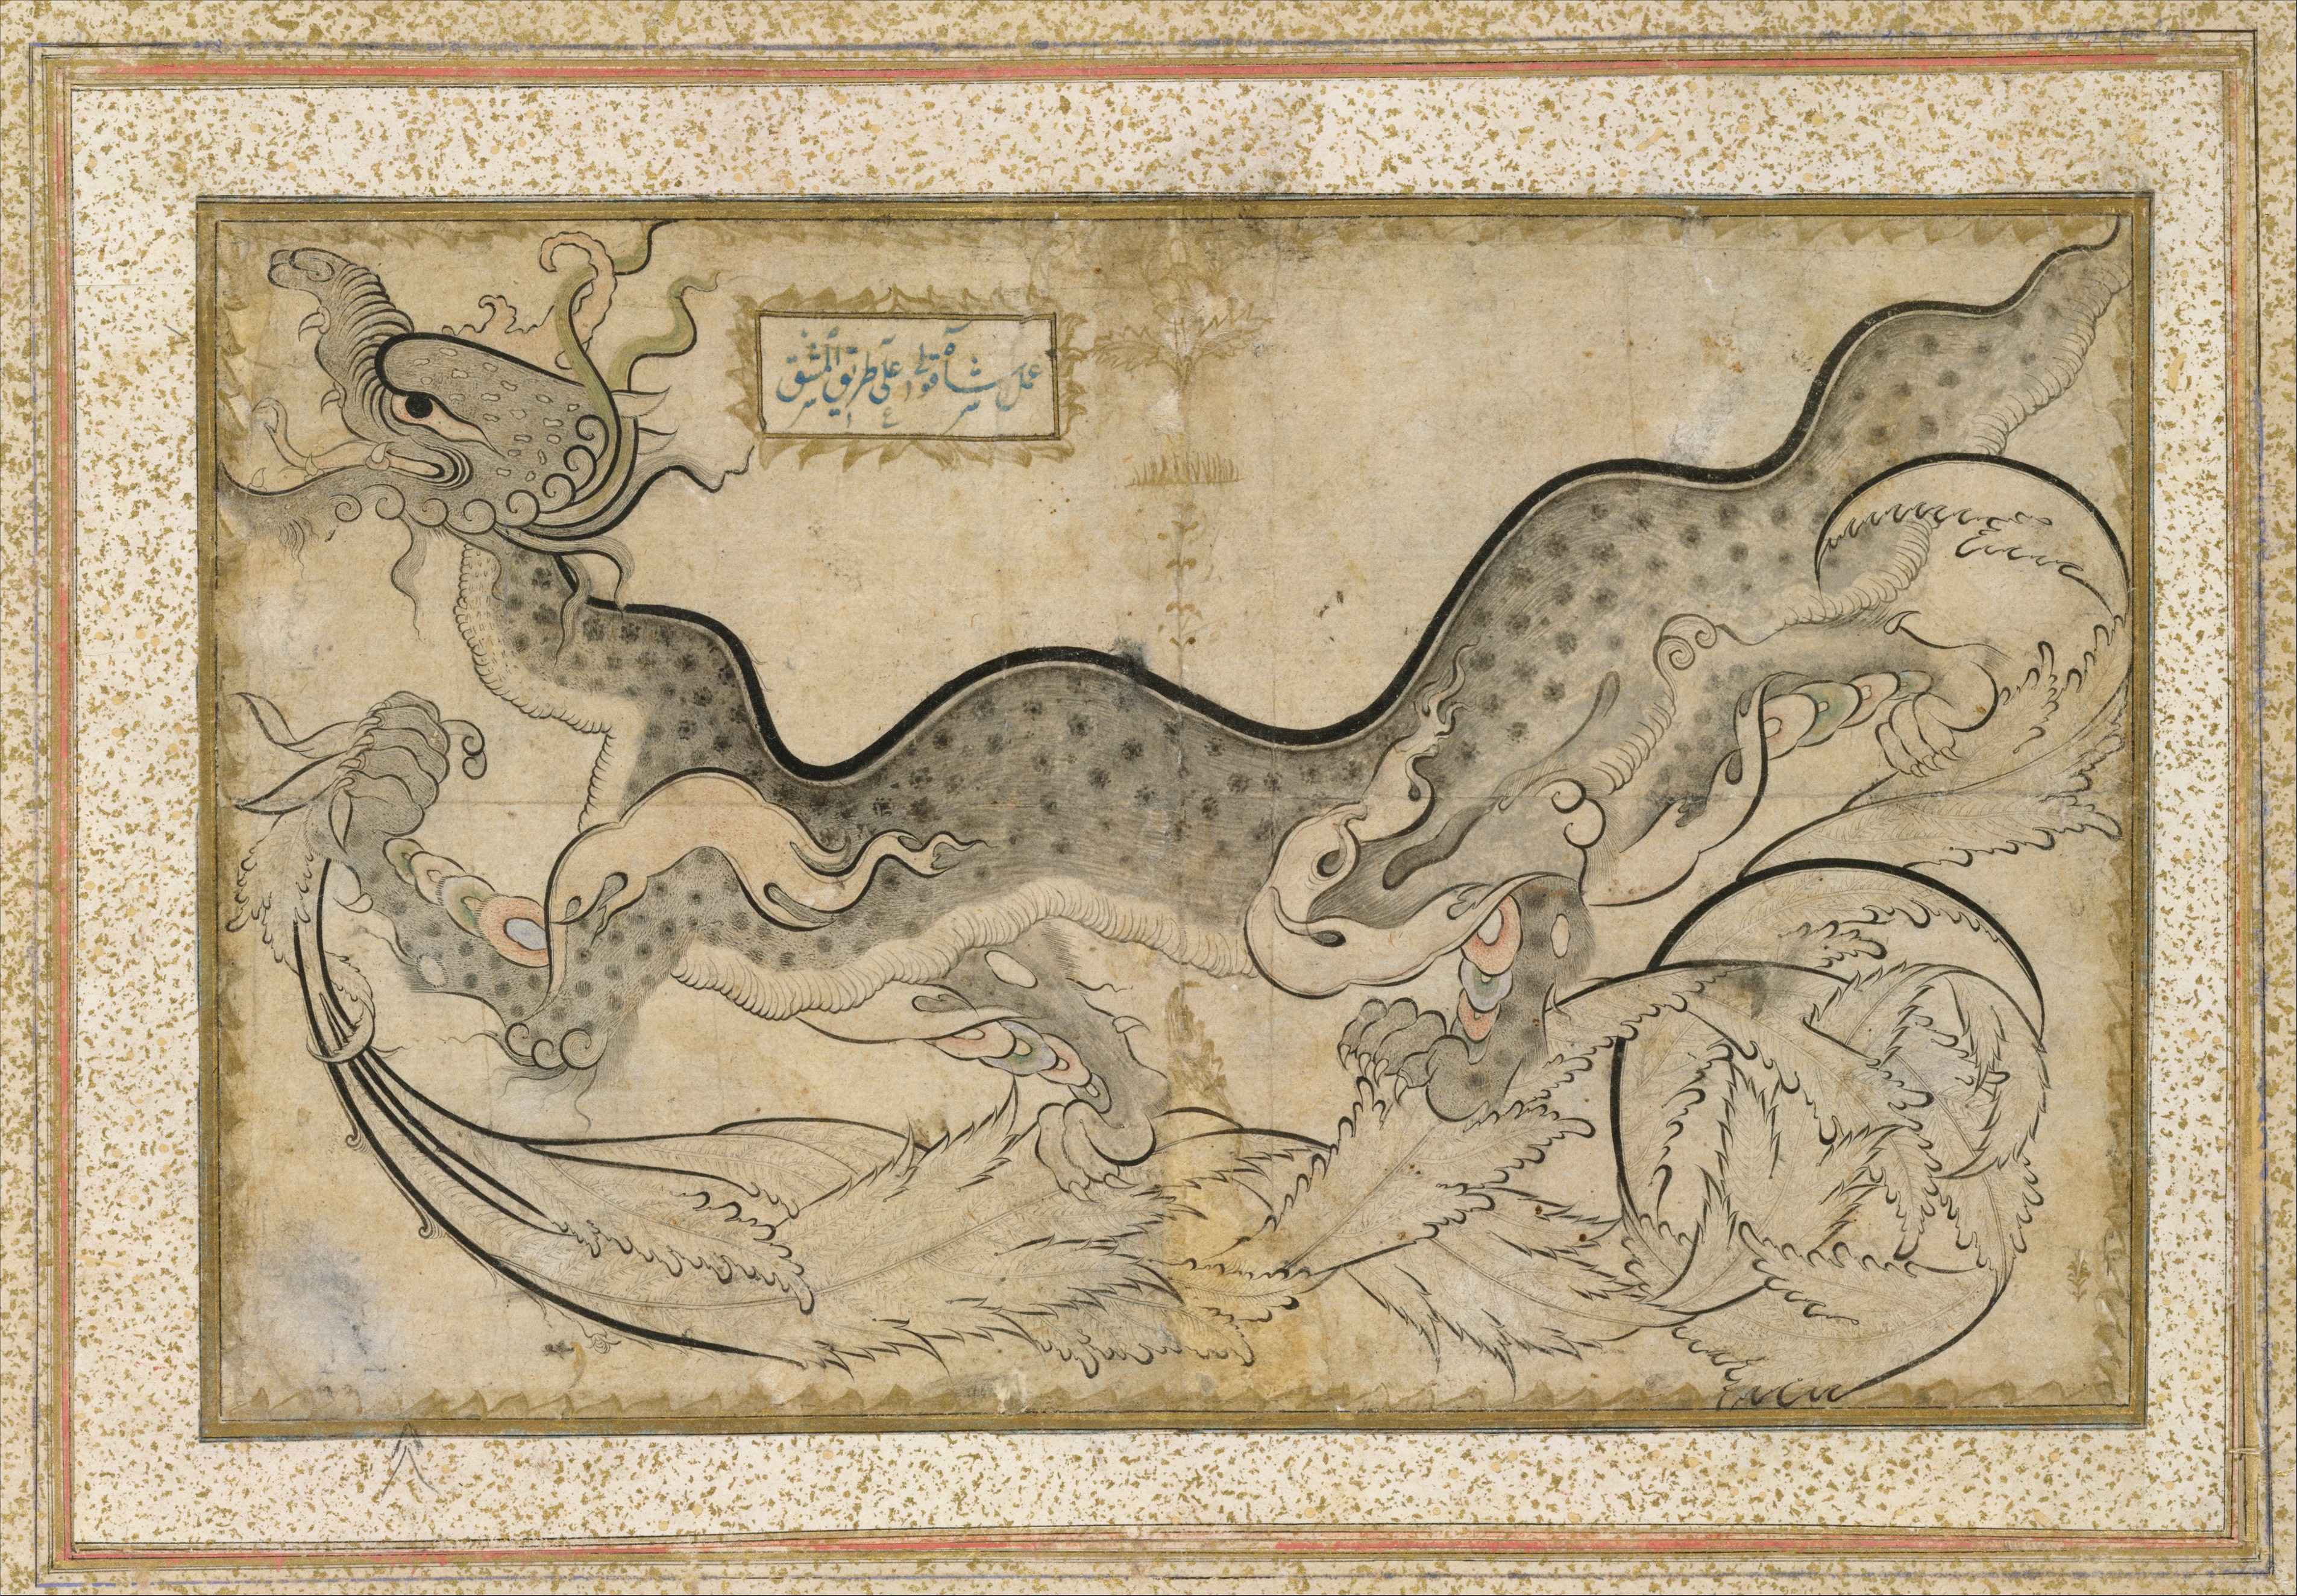 عمل شاه قولی علی طریق المشق